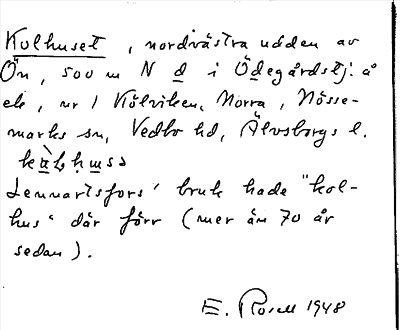 Kolhuset, nordvästra udden av
Ön, 500 m N d i Ödegårdstj. å
ek, nr 1 Kölviken, Norra, Nösse-
marks sn, Vedbo hd, Älvsborgs l.
Lennartsfors' bruk hade "kol-
hus" där förr (mer än 70 år
sedan).
E. Rosell 1948